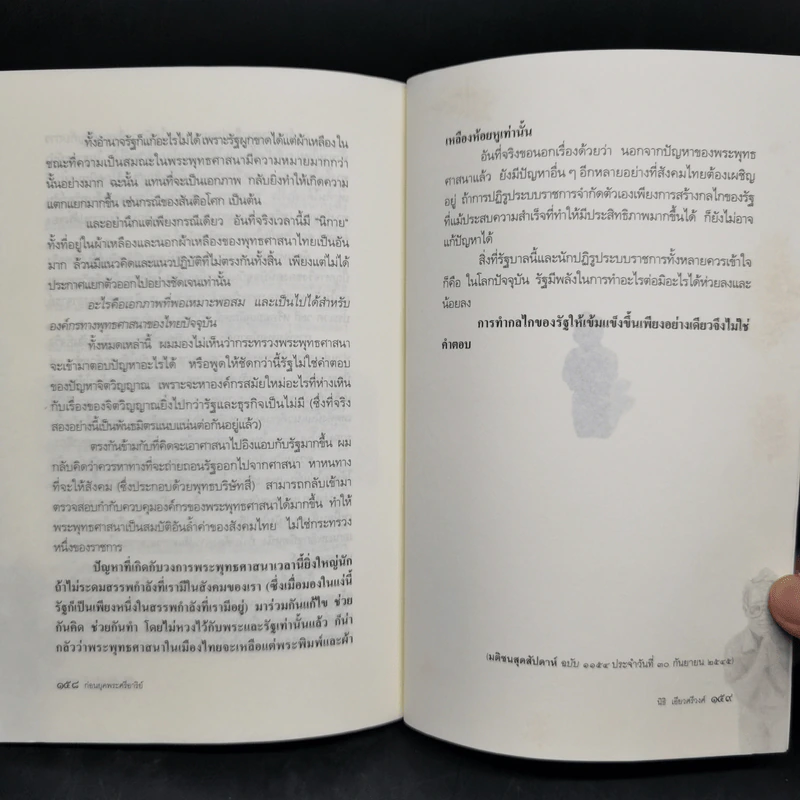 ทั้งอำนาจรัฐก็แก้อะไรไม่ได้ เพราะรัฐผูกขาดได้แต่ผ้าเหลือง ใน
ขณะที่ความเป็นสมณะในพระพุทธศาสนามีความหมายมากกว่า
นั้นอย่างมาก ฉะนั้น แทนที่จะเป็นเอกภาพ กลับยิ่งทำให้เกิดความ
แตกแยกมากขึ้น เช่นกรณีของสันติอโศก เป็นต้น
และอย่านึกแต่เพียงกรณีเดียว อันที่จริงเวลานี้มี "นิกาย"
ทั้งที่อยู่ในผ้าเหลืองและนอกผ้าเหลืองของพุทธศาสนาไทยเป็นอัน
มาก ล้วนมีแนวคิดและแนวปฏิบัติที่ไม่ตรงกันทั้งสิ้น เพียงแต่ไม่ได้
ประกาศแยกตัวออกไปอย่างชัดเจนเท่านั้น
อะไรคือเอกภาพที่พอเหมาะพอสม และเป็นไปได้สำหรับ
องค์กรทางพุทธศาสนาของไทยปัจจุบัน
ทั้งหมดเหล่านี้ ผมมองไม่เห็นว่ากระทรวงพระพุทธศาสนา
จะเข้ามาตอบปัญหาอะไรได้ หรือพูดให้ชัดกว่านี้รัฐไม่ใช่คำตอบ
ของปัญหาจิตวิญญาณ เพราะจะหาองค์กรสมัยใหม่อะไรที่ห่างเหิน
กับเรื่องของจิตวิญญาณยิ่งไปกว่ารัฐและธุรกิจเป็นไม่มี (ซึ่งที่จริง
สองอย่างนี้เป็นพันธมิตรแนบแน่นต่อกันอยู่แล้ว)
ตรงกันข้ามกับที่คิดจะเอาศาสนาไปอิงแอบกับรัฐมากขึ้น ผม
กลับคิดว่าควรหาทางที่จะถ่ายถอนรัฐออกไปจากศาสนา หาหนทาง
ที่จะให้สังคม (ซึ่งประกอบด้วยพุทธบริษัทสี่) สามารถกลับเข้ามา
ตรวจสอบกำกับควบคุมองค์กรของพระพุทธศาสนาได้มากขึ้น ทำให้
พระพุทธศาสนาเป็นสมบัติอันล้ำค่าของสังคมไทย ไม่ใช่กระทรวง
หนึ่งของราชการ
ปัญหาที่เกิดกับวงการพระพุทธศาสนาเวลานี้ยิ่งใหญ่นัก
ถ้าไม่ระดมสรรพกำลังที่เรามีในสังคมของเรา (ซึ่งเมื่อมองในแง่นี้
รัฐก็เป็นเพียงหนึ่งในสรรพกำลังที่เรามีอยู่) มาร่วมกันแก้ไข ช่วย
กันคิด ช่วยกันทำ โดยไม่หวงไว้กับพระและรัฐเท่านั้นแล้ว ก็น่า
กลัวว่าพระพุทธศาสนาในเมืองไทยจะเหลือแต่พระพิมพ์และผ้า
๑๕๘ ก่อนยุคพระศรีอาริย์
เหลืองห้อยหูเท่านั้น
อันที่จริงขอนอกเรื่องด้วยว่า นอกจากปัญหาของพระพุทธ
ศาสนาแล้ว ยังมีปัญหาอื่น ๆ อีกหลายอย่างที่สังคมไทยต้องเผชิญ
อยู่ ถ้าการปฏิรูประบบราชการจำกัดตัวเองเพียงการสร้างกลไกของรัฐ
ที่แม้ประสบความสำเร็จที่ทำให้มีประสิทธิภาพมากขึ้นได้ ก็ยังไม่อาจ
แก้ปัญหาได้
สิ่งที่รัฐบาลนี้และนักปฏิรูประบบราชการทั้งหลายควรเข้าใจ
ก็คือ ในโลกปัจจุบัน รัฐมีพลังในการทำอะไรต่อมิอะไรได้ห่วยลงและ
น้อยลง
การทำกลไกของรัฐให้เข้มแข็งขึ้นเพียงอย่างเดียวจึงไม่ใช่
คำตอบ
(มติชนสุดสัปดาห์ ฉบับ ๑๑๕๔ ประจำวันที่ ๓๐ กันยายน ๒๕๔๕)
นิธิ เอียวศรีวงศ์ ๑๕๙